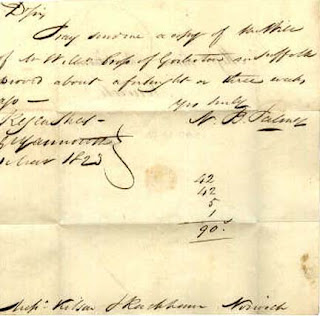 D Sir
Pray send me a copy of the Will
of Mr Will Crisp of Gorleston in Suffolk
proved about a fortnight or three weeks
ago —
Yrs truly
N. B. Palmer
Yarmouth
1823
42
42
5
1
90
Messrs Kitson & Rackham Norwich